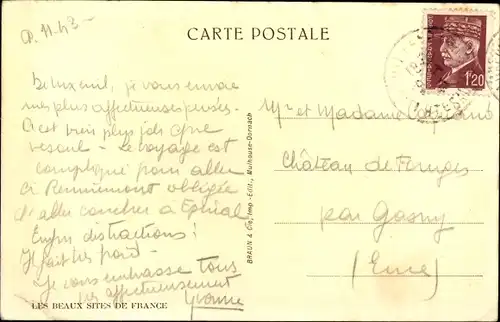 CARTE POSTALE
1F20
De Luxeuil, je vous envoie
mes plus affectueuses pensées.
C'est bien plus joli que
Vesoul - Le voyage est
compliqué pour aller
à Remiremont obligée
d'aller coucher à Epinal
Enfin distractions !
Il fait très froid -
Je vous embrasse tous
très affectueusement
Yvonne
LES BEAUX SITES DE FRANCE
BRAUN & Cie, Imp.-Edit., Mulhouse-Dornach
Mr et Madame
Château de
par Gasny
(Eure)